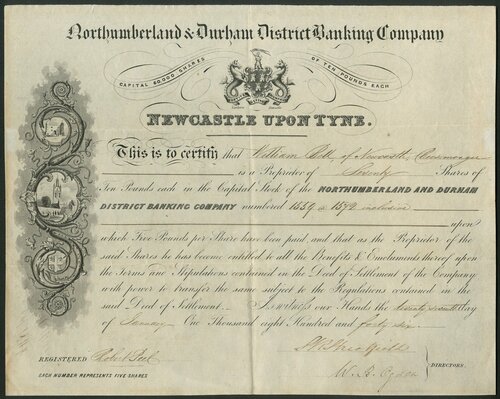 Northumberland & Durham District Banking Company
CAPITAL 60000 SHARES OF TEN POUNDS EACH
NEWCASTLE UPON TYNE.
This is to certify that William Bell of Newcastle
is a Proprietor of Seventy Shares of
Ten Pounds each in the Capital Stock of the NORTHUMBERLAND AND DURHAM
DISTRICT BANKING COMPANY numbered 1559 a 1572 inclusive
upon
which Five Pounds per Share have been paid, and that as the Proprietor of the
said Shares he has become entitled to all the Benefits & Emoluments thereof upon
the Terms and Stipulations contained in the Deed of Settlement of the Company
with power to transfer the same subject to the Regulations contained in the
said Deed of Settlement. As witness our Hands the twenty seventh day
of January One Thousand eight Hundred and forty six.
REGISTERED
W. B. Ogden
DIRECTORS.
EACH NUMBER REPRESENTS FIVE SHARES